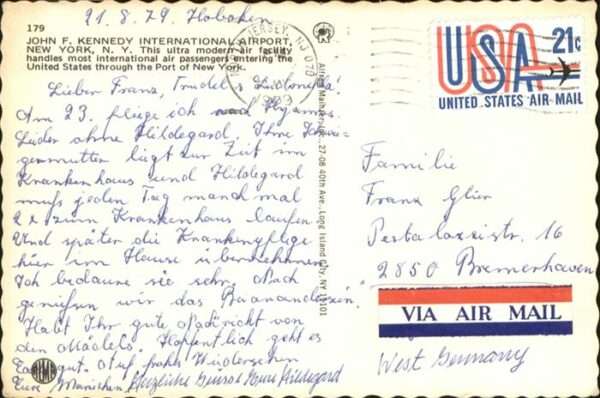 21.8.79 Hoboken
179
JOHN F. KENNEDY INTERNATIONAL AIRPORT,
NEW YORK, N. Y. This ultra modern air facility
handles most international air passengers entering the
United States through the Port of New York.
USA 21c
UNITED STATES AIR MAIL
JERSEY, NJ 070
Lieber Franz, Trudel
Am 23. fliege ich nach
Leider ohne Hildegard. Ihre
liegt zur Zeit im
Krankenhaus und Hildegard
muß jeden Tag manchmal
2 x zum Krankenhaus laufen
Und später die Krankenpflege
hier im Hause übernehmen
Ich bedaure sie sehr. Noch
genießen wir das Beisammensein
Habt Ihr gute Nachricht von
den Mädels. Hoffentlich geht es
gut. Auf frohes Wiedersehen
Eure Mariechen, Herzliche Grüße Eure Hildegard
27-08 40th Ave., Long Island City, NY 11101
Familie
Franz
Pestalozzistr. 16
2850 Bremerhaven
VIA AIR MAIL
West Germany